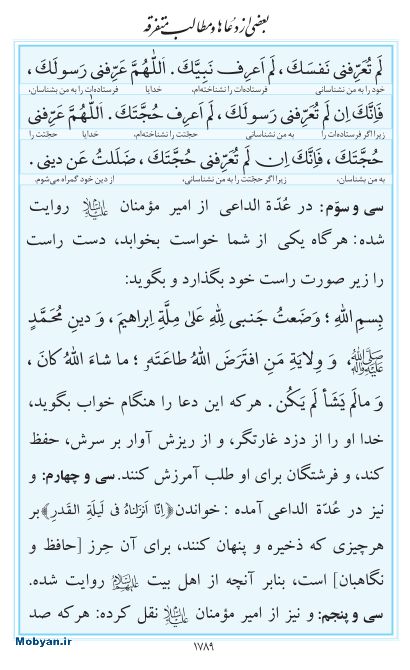 بعضی از دعاها و مطالب متفرقه
لَم تُعَرِّفنی نَفسَكَ ، لَم اَعرِف نَبِيَّكَ . اَللّٰهُمَّ عَرِّفنی رَسولَكَ ،
خود را به من نشناسانی فرستاده‌ات را نشناخته‌ام، خدایا فرستاده‌ات را به من بشناسان،
فَاِنَّكَ اِن لَم تُعَرِّفنی رَسولَكَ ، لَم اَعرِف حُجَّتَكَ . اَللّٰهُمَّ عَرِّفنی
زیرا اگر فرستاده‌ات را به من نشناسانی حجتت را نشناخته‌ام، خدایا حجتت را
حُجَّتَكَ ، فَاِنَّكَ اِن لَم تُعَرِّفنی حُجَّتَكَ ، ضَلَلتُ عَن دینی .
به من بشناسان، زیرا اگر حجتت را به من نشناسانی، از دین خود گمراه می‌شوم.
سی و سوّم: در عُدّة الداعی از امیر مؤمنان علیه‌السلام روایت
شده: هرگاه یکی از شما خواست بخوابد، دست راست
را زیر صورت راست خود بگذارد و بگوید:
بِسمِ اللهِ ؛ وَضَعتُ جَنبی لِلّٰهِ عَلیٰ مِلَّةِ اِبراهیمَ ، وَ دینِ مُحَمَّدٍ
صلی‌الله‌علیه‌وآله ، وَ وِلایَةِ مَنِ افتَرَضَ اللهُ طاعَتَهُ ؛ ما شاءَ اللهُ کانَ ،
وَ مالَم یَشَأ لَم یَکُن . هرکه این دعا را هنگام خواب بگوید،
خدا او را از دزد غارتگر، و از ریزش آوار بر سرش، حفظ
کند، و فرشتگان برای او طلب آمرزش کنند. سی و چهارم: و
نیز در عُدّة الداعی آمده : خواندن ﴿اِنّا اَنزَلناهُ فی لَیلَةِ القَدرِ﴾ بر
هرچیزی که ذخیره و پنهان کنند، برای آن حِرز [حافظ و
نگاهبان] است، بنابر آنچه از اهل بیت علیهم‌السلام روایت شده.
سی و پنجم: و نیز از امیر مؤمنان علیه‌السلام نقل کرده: هرکه صد
Mobyan.ir
۱۷۸۹